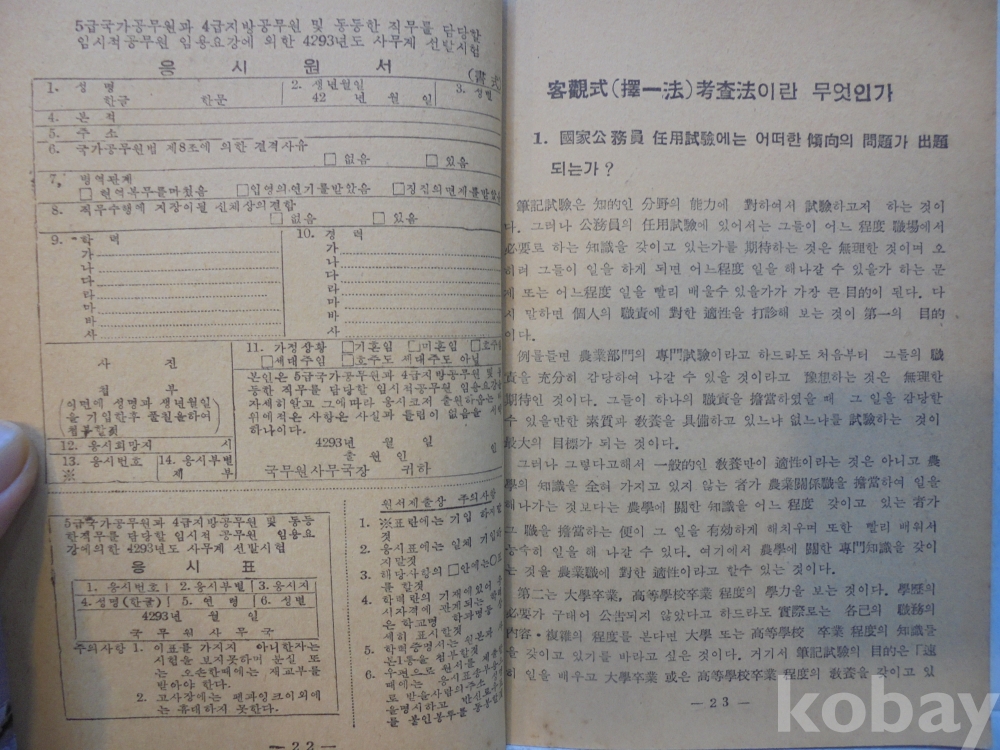 5급국가공무원과 4급지방공무원 및 동등한 직무를 담당할
임시적공무원 임용요강에 의한 4293년도 사무계 선발시험
응 시 원 서
(書式
1. 성 명
한글 한문
2. 생년월일
42 년 월 일
3. 성별
4. 본 적
5. 주 소
6. 국가공무원법 제8조에 의한 결격사유
□ 없음 □ 있음
7. 병역관계
□ 현역복무를마쳤음 □입영의연기를받았음 □징집의면제를받았음
8. 직무수행에 지장이될 신체상의결함
□ 없음 □ 있음
9. 학 력
가
나
다
라
마
바
사
10. 경 력
가
나
다
라
마
바
사
사 진
첩 부
(이면에 성명과 생년월일
을 기입한후 풀칠을하여
첩부할것)
11. 가정상황 □기혼일 □미혼일 □호주일
□세대주일 □호주도 세대주도 아닐
본인은 5급국가공무원과 4급지방공무원 및 동
등한 직무를 담당할 임시적공무원 임용요강을
자세히알고 그에따라 응시코저 출원하옵는
위에적은 사항은 사실과 틀림이 없음을
하나이다.
4293년 월 일
출 원 인 인
국무원사무국장 귀하
12. 응시희망지 시
13. 응시번호
※
14. 응시부별
제 부
5급국가공무원과 4급지방공무원 및 동등
한직무를 담당할 임시적 공무원 임용요
강에의한 4293년도 사무계 선발시험
응 시 표
1. 응시번호 2. 응시부별 3. 응시지
4. 성명(한글) 5. 연 령 6. 성별
4293년 월 일
국 무 원 사 무 국
주의사항 1. 이표를 가지지 아니한자는
시험을 보지못하며 분실 또
는 오손한때에는 재교부를
받아야 한다.
2. 고사장에는 펜과잉크이외에
는 휴대하지 못한다.
원서제출상 주의사항
1. ※표란에는 기입 하지말
것
2. 응시표에는 일체 기입하
지말것
3. 해당사항의 □안에는○표
를 할것
4. 학력란의 기재에있어
시자격에 관계되는 학력
은 학교명 학과명등
세히 표시할것
5. 학력증명서는 원본
본1통을 첨부할것
6. 우편으로 원서를 제출
때에는 응시표송부
로 받을사람의주소
을명시하고 반신료
를 봉인봉투를 동봉할것
— 2 2 —
客觀式(擇一法)考査法이란 무엇인가
1. 國家公務員 任用試驗에는 어떠한 傾向의 問題가 出題
되는가?
筆記試驗은 知的인 分野의 能力에 對하여서 試驗하고저 하는 것이
다. 그러나 公務員의 任用試驗에 있어서는 그들이 어느 程度 職場에서
必要로 하는 知識을 갖이고 있는가를 期待하는 것은 無理한 것이며 오
히려 그들이 일을 하게 되면 어느程度 일을 해나갈 수 있을가 하는 문
제 또는 어느程度 일을 빨리 배울수 있을가가 가장 큰 目的이 된다. 다
시 말하면 個人의 職責에 對한 適性을 打診해 보는 것이 第一의 目的
이다.
例를들면 農業部門의 專門試驗이라고 하드라도 처음부터 그들의 職
責을 充分히 감당하여 나갈 수 있을 것이라고 豫想하는 것은 無理한
期待인 것이다. 그들이 하나의 職責을 擔當하였을 때 그 일을 감당할
수 있을만한 素質과 敎養을 具備하고 있느냐 없느냐를 試驗하는 것이
最大의 目標가 되는 것이다.
그러나 그렇다고해서 一般的인 敎養만이 適性이라는 것은 아니고 農
學의 知識을 全혀 가지고 있지 않는 者가 農業關係職을 擔當하여 일을
해나가는 것보다는 農學에 關한 知識을 어느 程度 갖이고 있는 者가
그 職을 擔當하는 便이 그 일을 有効하게 해치우며 또한 빨리 배워서
능숙히 일을 해 나갈 수 있다. 여기에서 農學에 關한 專門知識을 갖이
는 것을 農業職에 對한 適性이라고 할수 있는 것이다.
第二는 大學卒業, 高等學校卒業 程度의 學力을 보는 것이다. 學歷의
必要가 구태여 公告되지 않았다고 하드라도 實際로는 各己의 職務의
內容・複雜의 程度를 본다면 大學 또는 高等學校 卒業 程度의 知識들
을 갖이고 있기를 바라고 싶은 것이다. 거기서 筆記試驗의 目的은 「速
히 일을 배우고 大學卒業 或은 高等學校卒業 程度의 敎養을 갖이고 있
— 2 3 —
kobay